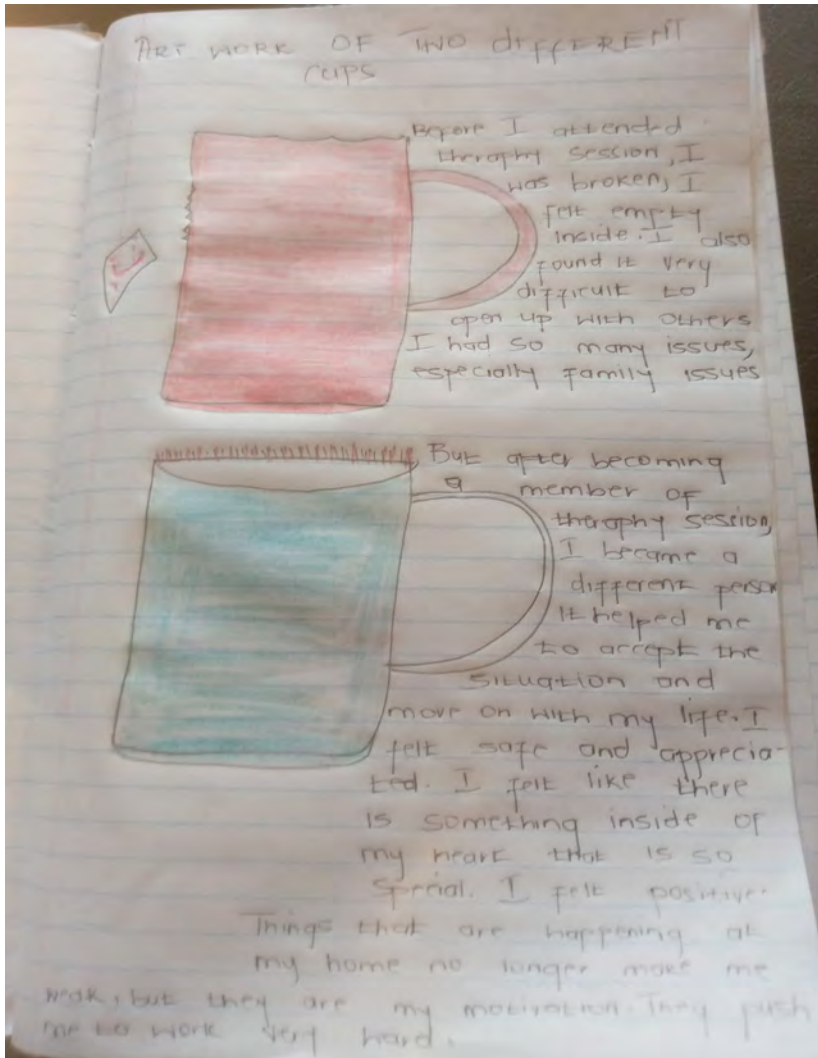 ART WORK OF TWO dIFFERENT
CUPS
Before I attended
theraphy session, I
was broken, I
felt empty
inside. I also
found it very
difficult to
open up with others
I had so many issues,
especially family issues
But after becoming
a member of
theraphy session,
I became a
different person
It helped me
to accept the
situation and
move on with my life. I
felt safe and apprecia-
ted. I felt like there
is something inside of
my heart that is so
special. I felt positive.
Things that are happening at
my home no longer make me
weak, but they are my motivation. They push
me to work very hard.